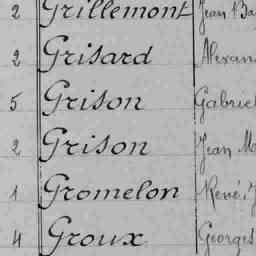 2 Grillemont Jean Ba
2 Grisard Alexan
5 Grison Gabriel
2 Grison Jean M
1 Gromelon René, J
4 Groux Georges